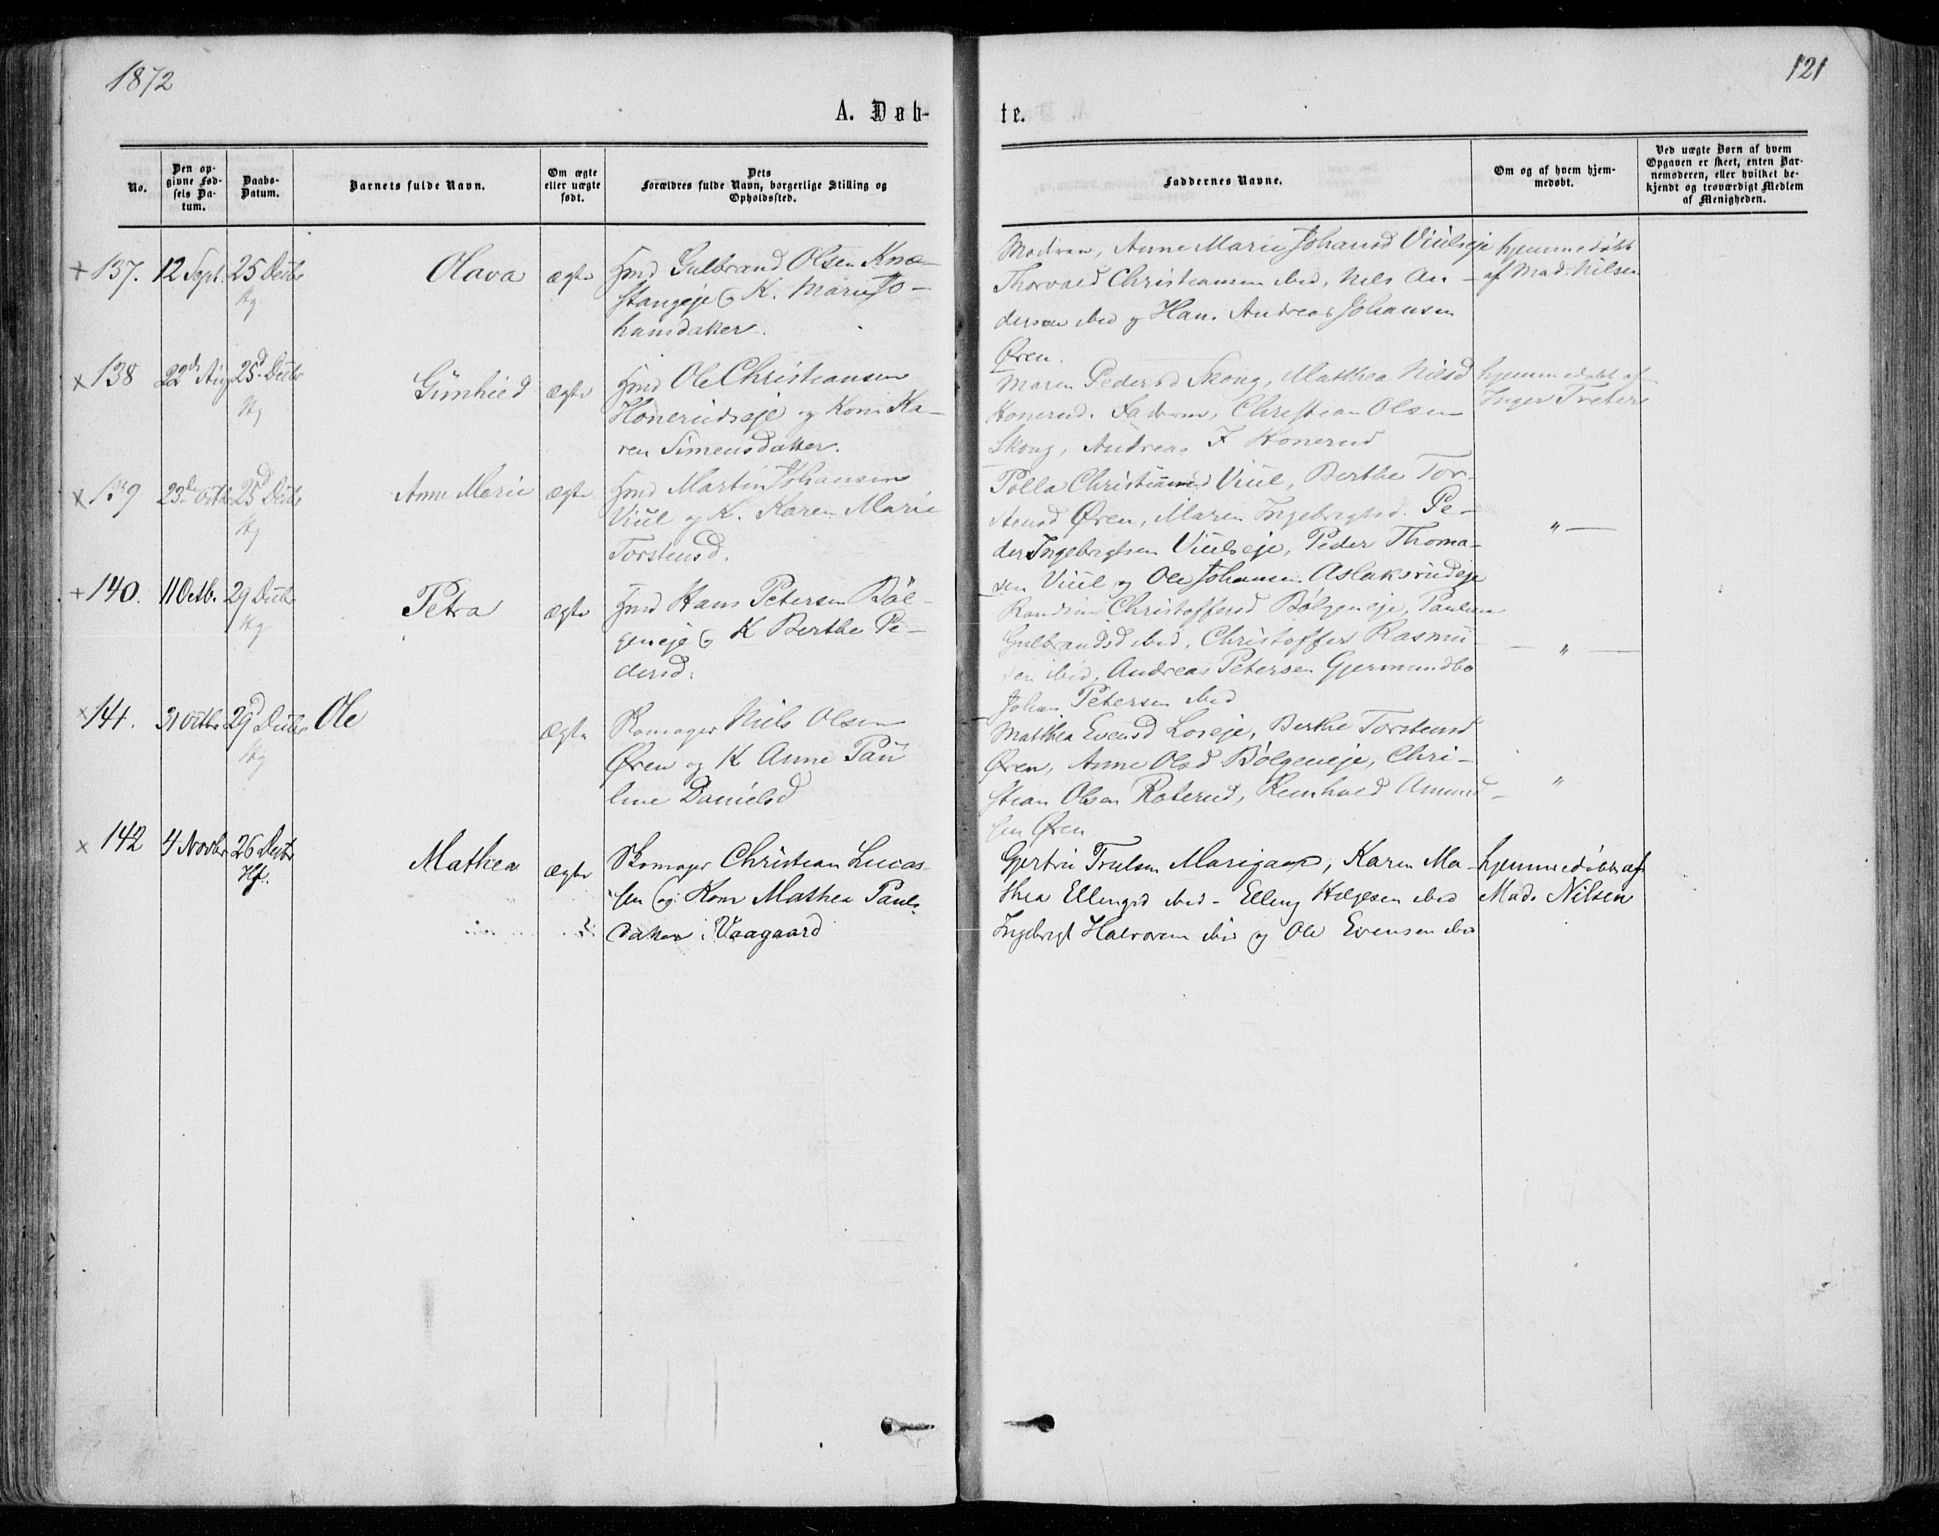 1872
121
A. Døb-
te.
No.
Den op-
givne Fød-
sels Da-
tum.
Daabs-
Datum.
Barnets fulde Navn.
Om ægte
eller uægte
født.
Dets
Forældres fulde Navn, borgerlige Stilling og
Opholdssted.
Faddernes Navne.
Om og af hvem hjem-
medøbt.
Ved uægte Børn af hvem
Opgaven er skeet, enten Bar-
nemoderen, eller hvilket be-
kjendt og troværdigt Medlem
af Menigheden.
+ 137. 12 Sept. 25 Decbr
Hg
Olava
ægte
Hmd Gulbrand Olsen Knæ-
stangeje og K. Marie Jo-
hansdatter.
Modren, Anne Marie Johansd Viulseje
Thorvald Christiansen ibid, Nils An-
dersen ibid og Han. Andreas Johansen
Øren.
hjemmedøbt
af Mad. Nilsen
x 138 22de Aug 25d Decbr
Hg
Gunhild
ægte
Hmd Ole Christiansen
Honerudseje og Kone Ka-
ren Simensdatter.
Maren Pedersd Skong, Matthea Nilsd
Honerud. Faderen, Christian Olsen
Skong, Andreas F Honerud
hjemmedøbt af
Inger Træter
x 139 23de Octb 25d Decbr
Hg
Anne Marie
ægte
Hmd Martin Johansen
Viul og K. Karen Marie
Torstensd.
Polla Christiansd Viul, Berthe Tor-
stensd Øren, Maren Ingebrigtsd. Pe-
der Ingebrigtsen Viulseje, Peder Thoma-
sen Viul og Ole Johansen Aslaksrudeje
" —
+ 140. 11 Octb. 29 Decbr
Hg
Petra
ægte
Hmd Hans Petersen Bøl-
geneje og K Berthe Pe-
dersd.
Randine Christoffersd Bølgeneje, Pauline
Gulbrandsd ibid, Christoffer Rasmu-
sen ibid, Andreas Petersen Gjermundbo
Johan Petersen ibid
— " —
x 141. 31 Octbr 29d Decbr
Hg
Ole
ægte
Skomager Niels Olsen
Øren og K Anne Pau
line Danielsd
Mathea Evensd Loreje, Berthe Torstensd
Øren, Anne Olsd Bølgeneje, Chri-
stian Olsen Roterud, Reinhold Amund-
sen Øren
"
x 142 4 Novbr 26 Decbr
Hf.
Mathea
ægte
Skomager Christian Lucas-
sen og Kone Mathea Pauls-
datter i Vaagaard
Gjertru Trulsen Marigaard, Karen Ma-
thea Ellingsd ibid - Elling Helgesen ibid
Ingebrigt Halvorsen ibid og Ole Evensen ibid
hjemmedøbt af
Mad. Nilsen